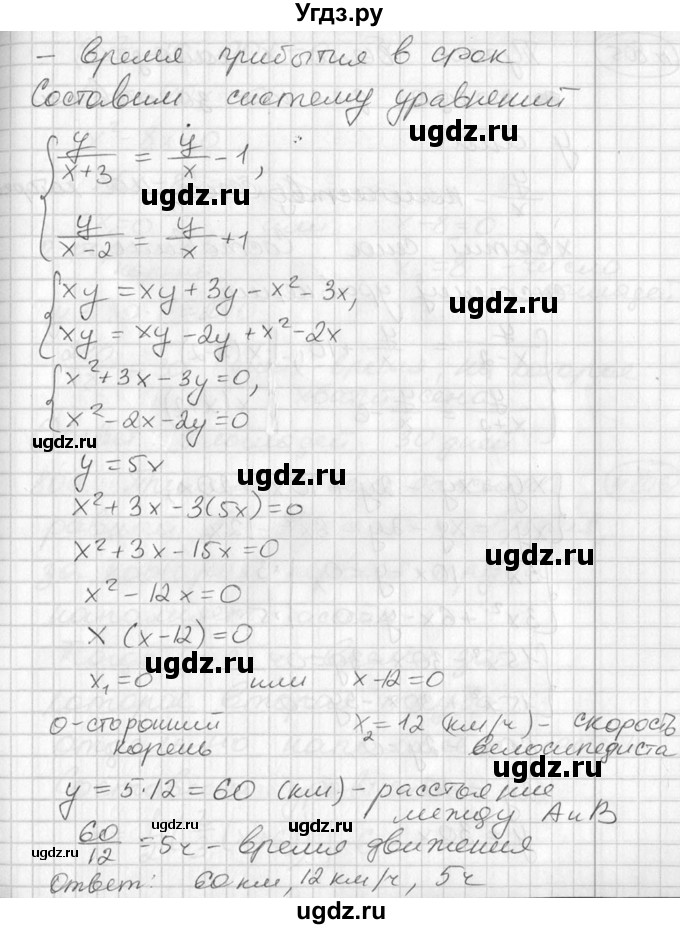 Угдз.ру
- время прибытия в срок
Составим систему уравнений
ugdz.ru
{ y/(x+3) = y/x - 1,
ugdz.ru
y/(x-2) = y/x + 1
{ xy = xy + 3y - x² - 3x,
ugdz.ru
xy = xy - 2y + x² - 2x
{ x² + 3x - 3y = 0,
x² - 2x - 2y = 0
ugdz.ru ugdz.ru
y = 5x
ugdz.ru
x² + 3x - 3(5x) = 0
x² + 3x - 15x = 0
ugdz.ru
x² - 12x = 0
x (x-12) = 0
ugdz.ru
x₁ = 0 или x-12 = 0
0-сторонний корень
x₂ = 12 (км/ч) - скорость велосипедиста
ugdz.ru
y = 5·12 = 60 (км) - расстояние между А и В
ugdz.ru ugdz.ru
60/12 = 5ч - время движения
ugdz.ru ugdz.ru
Ответ: 60 км, 12 км/ч, 5 ч
ugdz.ru